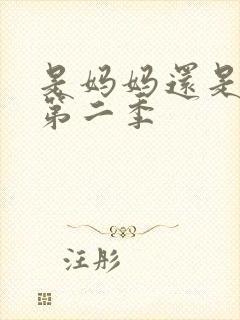 是妈妈還是
第二季
汪彤